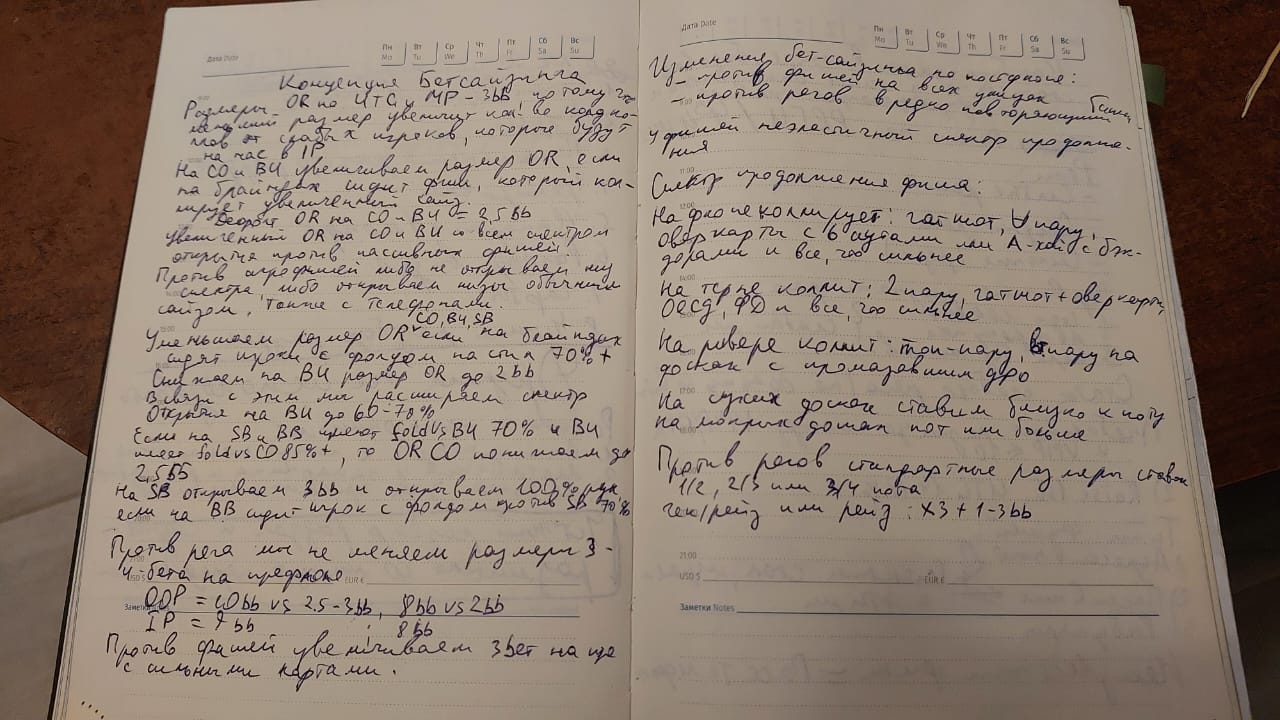 Дата Date
Пн Вт Ср Чт Пт Сб Вс
Mo Tu We Th Fr Sa Su
Концепция Бетсайзинга
Размеры OR по UTG и MP - 3bb, потому что
меньший размер увеличит кол-во колд ко-
лов от слабых игроков, которые будут
на нас в IP
На CO и BU увеличиваем размер OR, если
на блайндах сидит фиш, который кол-
лирует увеличенный сайз.
OR на CO и BU = 2,5bb
увеличенный OR на CO и BU со всем спектром
открытия против пассивных фишей.
Против агрофишей либо не открываем низ
спектра, либо открываем низы обычным
сайзом, также с телефонами.
Уменьшаем размер OR CO, BU, SB если на блайндах
сидят игроки с фолдом на стил 70%+
Снижаем на BU размер OR до 2bb
В связи с этим мы расширяем спектр
Открытия на BU до 60-70%
Если на SB и BB имеют foldvsBU 70% и BU
имеет foldvsCO 85%+, то OR CO понижаем до
2,5ББ
На SB открываем 3bb и открываем 100% рук,
если на BB сидит игрок с фолдом против SB 70%
Против рега мы не меняем размеры 3-
4-бета на префлопе
USD $ EUR €
Заметки
OOP = 10bb vs 2.5-3bb, 8bb vs 2bb
IP = 9bb ; 8bb
Против фишей увеличиваем 3bet на
с сильными картами.
Дата Date
Пн Вт Ср Чт Пт Сб Вс
Mo Tu We Th Fr Sa Su
Изменения бет-сайзинга по постфлопе:
- против фишей на всех улицах
- против регов в редко повторяющийся
у фишей неэластичный спектр продолже-
ния
Спектр продолжения фиша:
На флопе коллирует: гатшот, ∀ пару,
оверкарты с 6 аутами или A-хай с бэк-
дорами и все, что сильнее
На терне коллит: 2 пару, гатшот + оверкарты,
ОЕСД, ФД и все, что сильнее
На ривере коллит: топ-пару, пару на
досках с промазавшим дро
На сухих досках ставим близко к поту
на мокрых досках пот или больше
Против регов стандартные размеры ставок
1/2, 2/3 или 3/4 пота
чек/рейз или рейз: x3 + 1-3bb
21:00
USD $ EUR €
Заметки Notes